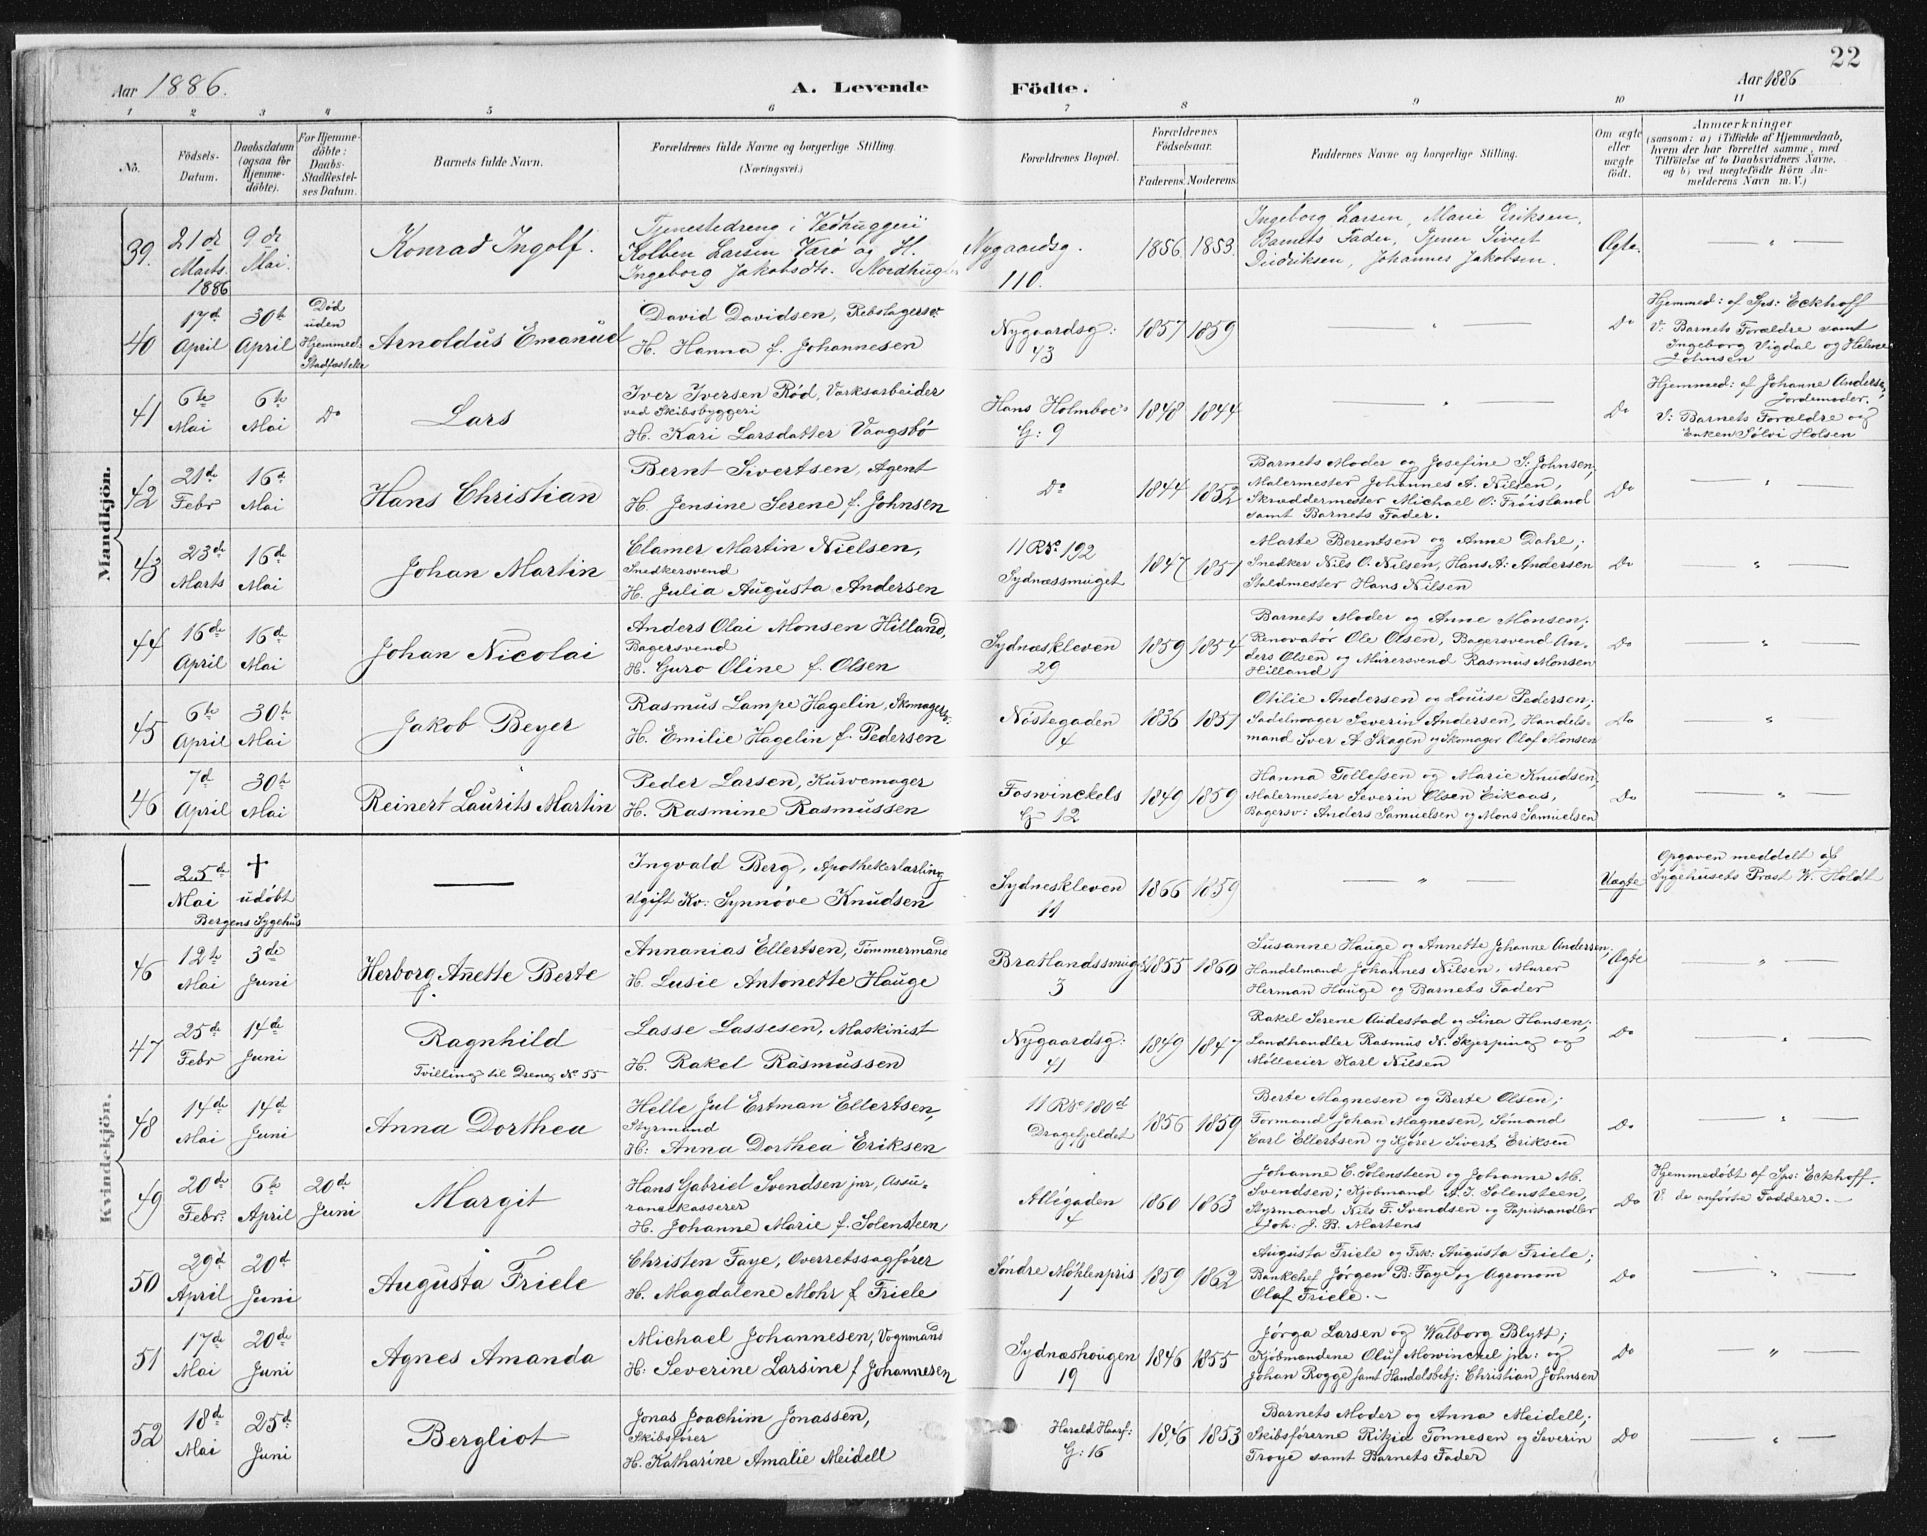 22
Aar 1886.
A. Levende Födte.
Aar 1886
1 2 3 4 5 6 7 8 9 10 11
No.
Födsels-Datum.
Daabsdatum (ogsaa for Hjemme-döbte).
For Hjemme-döbte: Daabs-Stadfæstel-ses Datum.
Barnets fulde Navn.
Forældrenes fulde Navne og borgerlige Stilling.
(Næringsvei.)
Forældrenes Bopæl.
Forældrenes Födselsaar.
Faderens. Moderens.
Faddernes Navne og borgerlige Stilling.
Om ægte eller uægte födt.
Anmærkninger
(saasom: a) i Tilfælde af Hjemmedaab,
hvem der har forrettet samme, med
Tilföielse af to Daabsvidners Navne,
og b) ved uegtefödte Börn An-
melderens Navn m.V.)
Mandkjön.
39. 21de Marts 1886 9de Mai. Konrad Ingolf.
Tjenestedreng i Vedhuggeri
Kolben Larsen Varø og H.
Ingeborg Jakobsdt. Nordhuglen
Nygaardsg. 110.
1856. 1853.
Ingeborg Larsen, Marie Eriksen,
Barnets Fader, Tjener Sivert
Didriksen, Johannes Jakobsen.
Ægte. — " —
40 17d April 30te April Død uden Hjemmed. Stadfæstelse
Arnoldus Emanuel
David Davidsen, Rebslagersv.
H. Hanna f. Johannesen
Nygaardsg: 43
1857 1859
— " —
Do
Hjemmed: af Sps: Eckhoff
V: Barnets Forældre samt
Ingeborg Vigdal og Helene
Johnsen
41 6te Mai 6te Mai Do Lars
Iver Iversen Rød, Værksarbeider
ved Skibsbyggeri
H. Kari Larsdatter Vaagsbø
Hans Holmboes G: 9
1848 1844
— " —
Do
Hjemmed: af Johanne Anders.,
Jordemoder,
V: Barnets Forældre og
Enken Sølvi Holsen
42 21de Febr 16d Mai Hans Christian
Bernt Sivertsen, Agent
H. Jensine Serene f. Johnsen
Do
1844 1852
Barnets Moder og Josefine S. Johnsen,
Malermester Johannes A. Nilsen,
Skræddermester Michael O: Frøisland
samt Barnets Fader.
Do — " —
43 23de Marts 16d Mai Johan Martin
Clamer Martin Nielsen,
Snedkersvend
H. Julia Augusta Andersen
11 R No. 192 Sydnæssmuget
1847 1851
Marte Berentsen og Anne Dahl;
Snedker Nils O: Nilsen, Hans A: Andersen
Staldmester Hans Nilsen
Do — " —
44 16de April 16de Mai Johan Nicolai
Anders Olai Monsen Hilland,
Bagersvend
H. Guro Oline f. Olsen
Sydnæskleven 29
1859 1854
Barnets Moder og Anne Monsen;
Renovatør Ole Olsen, Bagersvend An-
ders Olsen og Murersvend Rasmus Monsen
Hilland
Do — " —
45 6te April 30te Mai Jakob Beyer
Rasmus Lampe Hagelin, Skomagersv.
H. Emilie Hagelin f. Pedersen
Nøstegaden 4
1836 1851
Otilie Andersen og Louise Pedersen;
Sadelmager Severin Andersen, Handels-
mand Iver A Skagen og Skomager Olaf Monsen
Do — " —
46 7d April 30te Mai Reinert Laurits Martin
Peder Larsen, Kurvemager
H. Rasmine Rasmussen
Foswinckels G 12
1849 1859
Hanna Tollefsen og Marie Knudsen,
Malermester Severin Olsen Eikaas,
Bagersv: Anders Samuelsen og Mons Samuelsen
Do — " —
Kvindekjön.
— 25de Mai † udøbt
Bergens Sygehus
—
Ingvald Berg, Apothekerlærling
Ugift Kv: Synnøve Knudsen
Sydneskleven 14
1866 1859
— " —
Uægte
Opgaven meddelt af
Sygehusets Præst W. Holdt
46 12te Mai 3de Juni Herborg Anette Berte
Annanias Ellertsen, Tømmermand
H. Lusie Antonette Hauge
Bratlandssmug 3
1855 1860
Susanne Hauge og Annette Johanne Andersen;
Handelmand Johannes Nilsen, Murer
Herman Hauge og Barnets Fader
Ægte — " —
47 25de Febr 14de Juni Ragnhild
Tvilling til Dreng No 55
Lasse Lassesen, Maskinist
H. Rakel Rasmussen
Nygaardsg: 41
1849 1847
Rakel Serene Audestad og Lina Hansen;
Landhandler Rasmus N. Skjerping og
Mølleeier Karl Nilsen
Do — " —
48 14de Mai 14d Juni Anna Dorthea
Helle Jul Ertman Ellertsen,
Styrmand
H: Anna Dorthea Eriksen
11 R No 180d Dragefjeldet
1856 1859
Berte Magnesen og Berte Olsen;
Formand Johan Magnesen, Sømand
Carl Ellertsen og Kjører Sivert Eriksen
Do — " —
49 20de Febr: 6te April 20de Juni Margit
Hans Gabriel Svendsen jnr, Assu-
rancekasserer
H. Johanne Marie f. Solensteen
Allégaden 4
1860 1863
Johanne E. Solensteen og Johanne M.
Svendsen; Kjøbmand A. I. Solensteen,
Styrmand Nils F. Svendsen og Papirhandler
Joh: J. B. Martens
Do
Hjemmedøbt af Sps: Eckhoff.
V: de anførte Faddere. —
50 29d April 20d Juni Augusta Friele
Christen Faye, Overretssagfører
H. Magdalene Mohr f Friele
Søndre Møhlenpris 1
1859 1862
Augusta Friele og Frk: Augusta Friele;
Bankchef Jørgen B: Faye og Agronom
Olaf Friele. —
Do — " —
51 17de Mai 20de Juni Agnes Amanda
Michael Johannesen, Vognmand
H: Severine Larsine f Johannesen
Sydnæshougen 19
1846 1855
Jørga Larsen og Walborg Blytt;
Kjøbmændene Oluf Mowinckel jnr: og
Johan Rogge samt Handelsbetj: Christian Johnsen
Do — " —
52 18de Mai 25d Juni Bergliot
Jonas Joachim Jonassen,
Skibsfører
H. Katharine Amalie Meidell
Harald Haarf: G: 16
1846 1853
Barnets Moder og Anna Meidell;
Skibsførerne Rikjid Tønnesen og Severin
Troye samt Barnets Fader
Do — " —